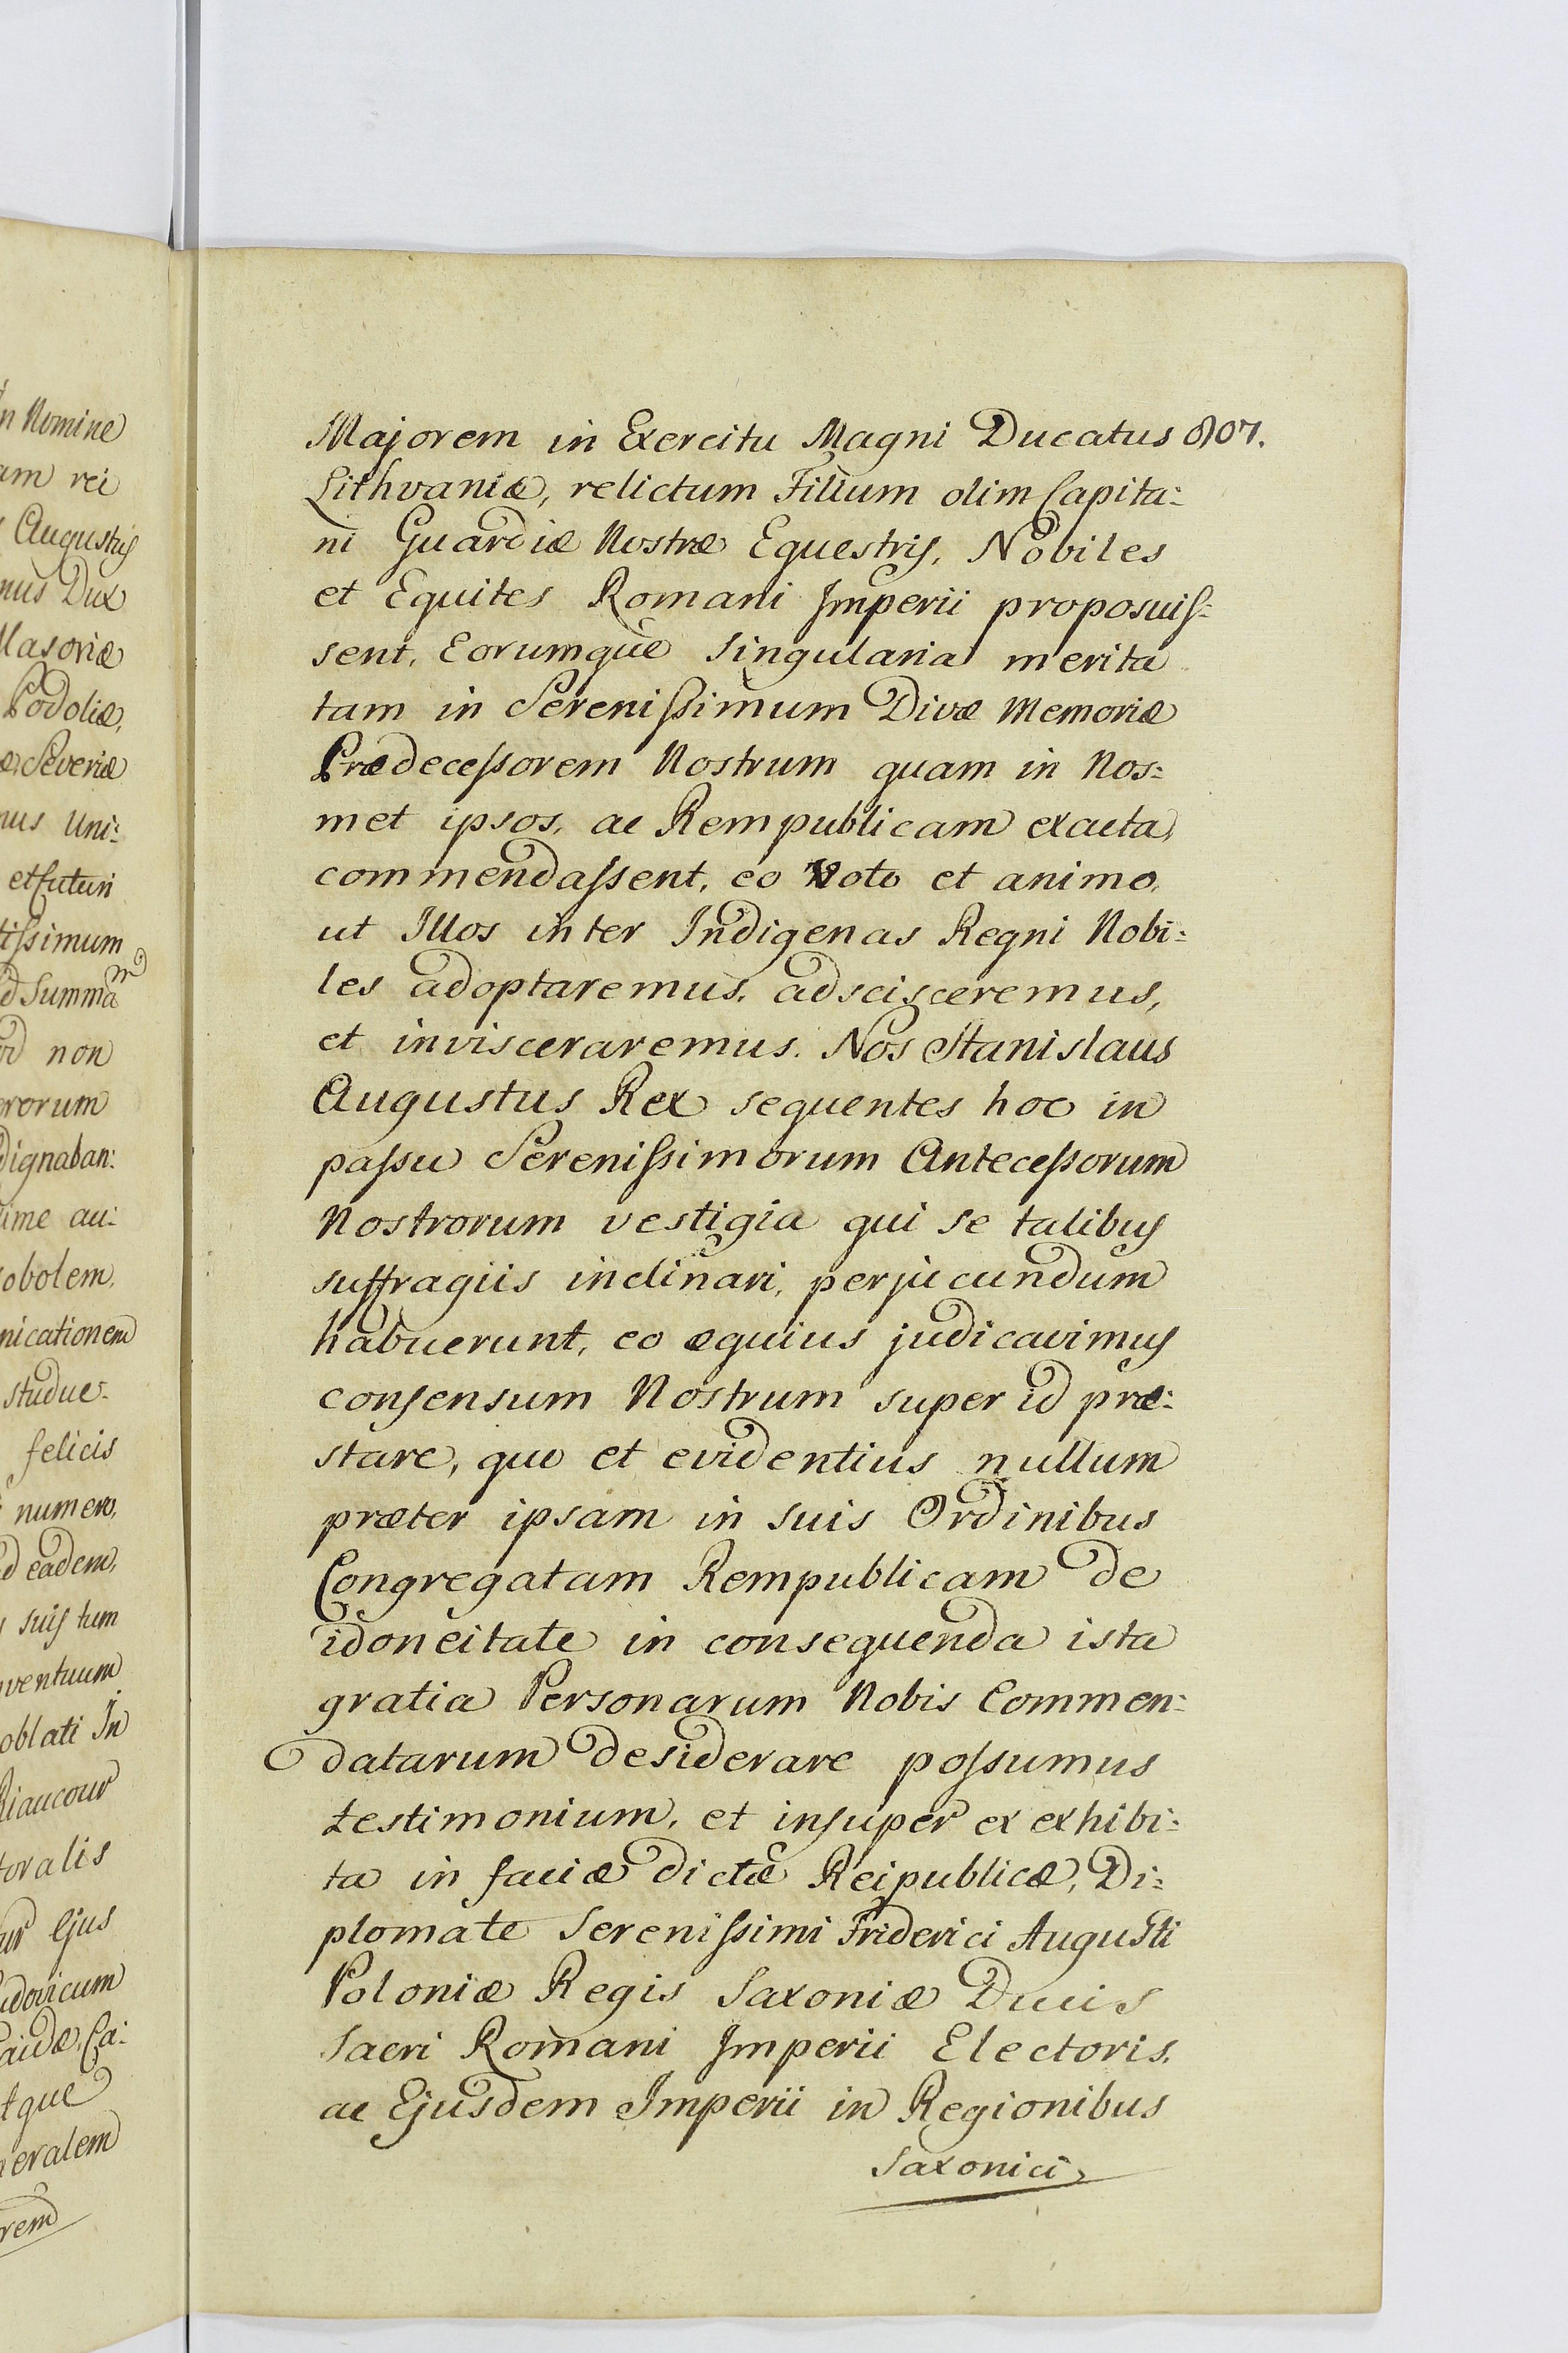 n Nomine
am rei
Augustis
nus Dux
Masoviæ
Podoliæ,
æ, Severiæ
nus Uni:
et futuri
tissimum
d Summam
od non
ororum
dignaban:
ime au:
sobolem,
nicationem
studue:
felicis
numero,
d eadem,
suis tum
nventuum
oblati In
Riaucour
toralis
ur Ejus
udovicum
aidæ, Ca:
tque
neralem
rem
Majorem in Exercitu Magni Ducatus 807.
Lithvaniæ, relictum Filium olim Capita:
ni Guardiæ Nostræ Equestris, Nobiles
et Equites Romani Imperii proposuis:
sent, Eorumque singularia merita
tam in Serenissimum Divæ Memoriæ
Prædecessorem Nostrum quam in Nos:
met ipsos, ac Rempublicam exacta,
commendassent, eo Voto et animo,
ut Illos inter Indigenas Regni Nobi:
les adoptaremus, adscisceremus,
et invisceraremus. Nos Stanislaus
Augustus Rex sequentes hoc in
passu Serenissimorum Antecessorum
Nostrorum vestigia qui se talibus
suffragiis inclinari, perjucundum
habuerunt, eo æquius judicavimus
consensum Nostrum super id præ:
stare, quo et evidentius nullum
præter ipsam in suis Ordinibus
Congregatam Rempublicam de
idoneitate in consequenda ista
gratia Personarum Nobis Commen:
datarum desiderare possumus
testimonium, et insuper ex exhibi:
ta in faciæ dictæ Reipublicæ, Di:
plomate Serenissimi Friderici Augusti
Poloniæ Regis Saxoniæ Ducis
Sacri Romani Imperii Electoris,
ac Ejusdem Imperii in Regionibus
Saxonici